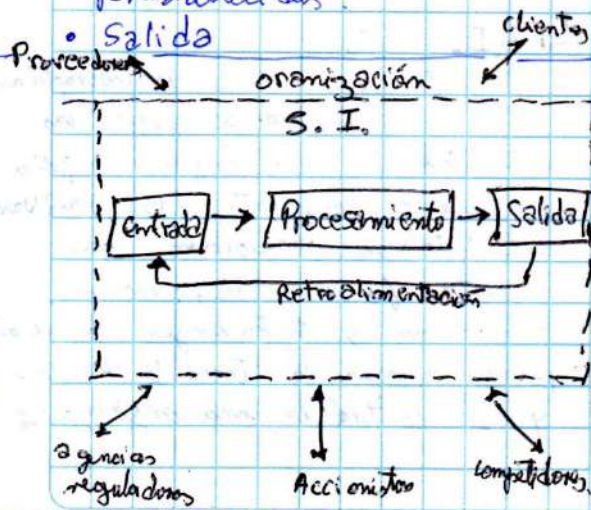 • Salida
clientes
Proveedores
oranización
S. I.
Entrada → Procesamiento → Salida
Retroalimentación
agencias
reguladoras
Accionistas
Competidores